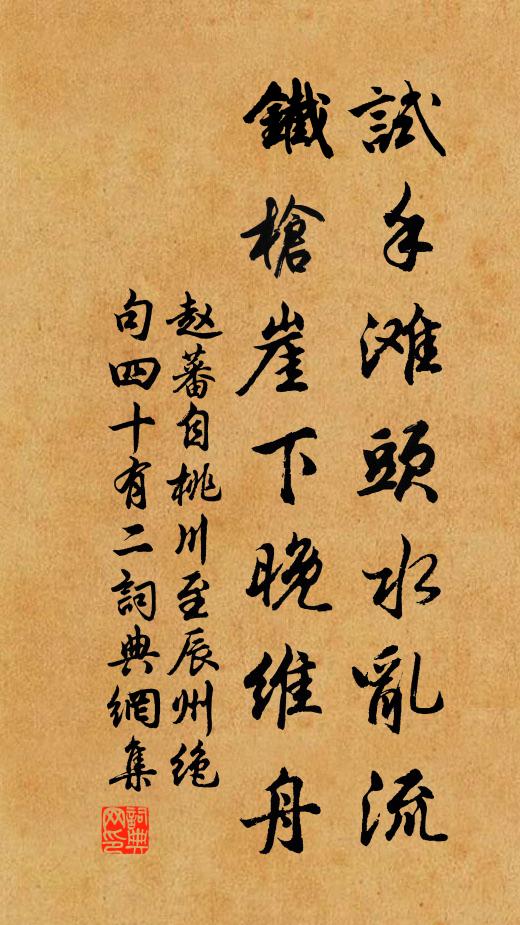 試手滩頭水亂流
鐵槍崖下晚維舟
赵蕃自桃川至辰州绝
句四十有二詞典網集
詞典
网印